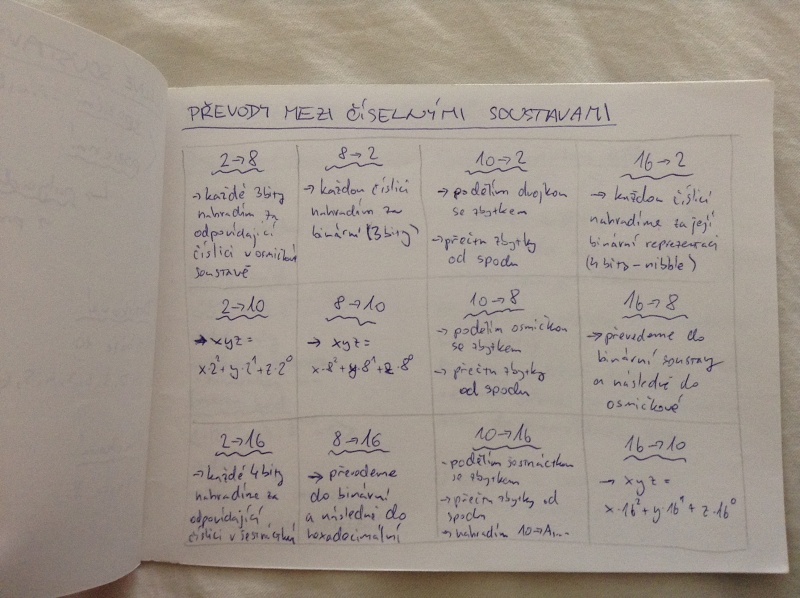 PŘEVODY MEZI ČÍSELNÝMI SOUSTAVAMI
2→8
→ každé 3 bity
nahradím za
odpovídající
číslici v osmičkové
soustavě
8→2
→ každou číslici
nahradím za
binární (3 bity)
10→2
→ podělím dvojkou
se zbytkem
→ přečtu zbytky
od spodu
16→2
→ každou číslici
nahradíme za její
binární reprezentaci
(4 bity – nibble)
2→10
→ xyz =
x·2²+y·2¹+z·2⁰
8→10
→ xyz =
x·8²+y·8¹+z·8⁰
10→8
→ podělím osmičkou
se zbytkem
→ přečtu zbytky
od spodu
16→8
→ převedeme do
binární soustavy
a následně do
osmičkové
2→16
→ každé 4 bity
nahradíme za
odpovídající
číslici v šestnáctkové
8→16
→ převedeme
do binární
a následně do
hexadecimální
10→16
→ podělím šestnáctkou
se zbytkem
→ přečtu zbytky od
spodu
→ nahradím 10→A...
16→10
→ xyz =
x·16²+y·16¹+z·16⁰